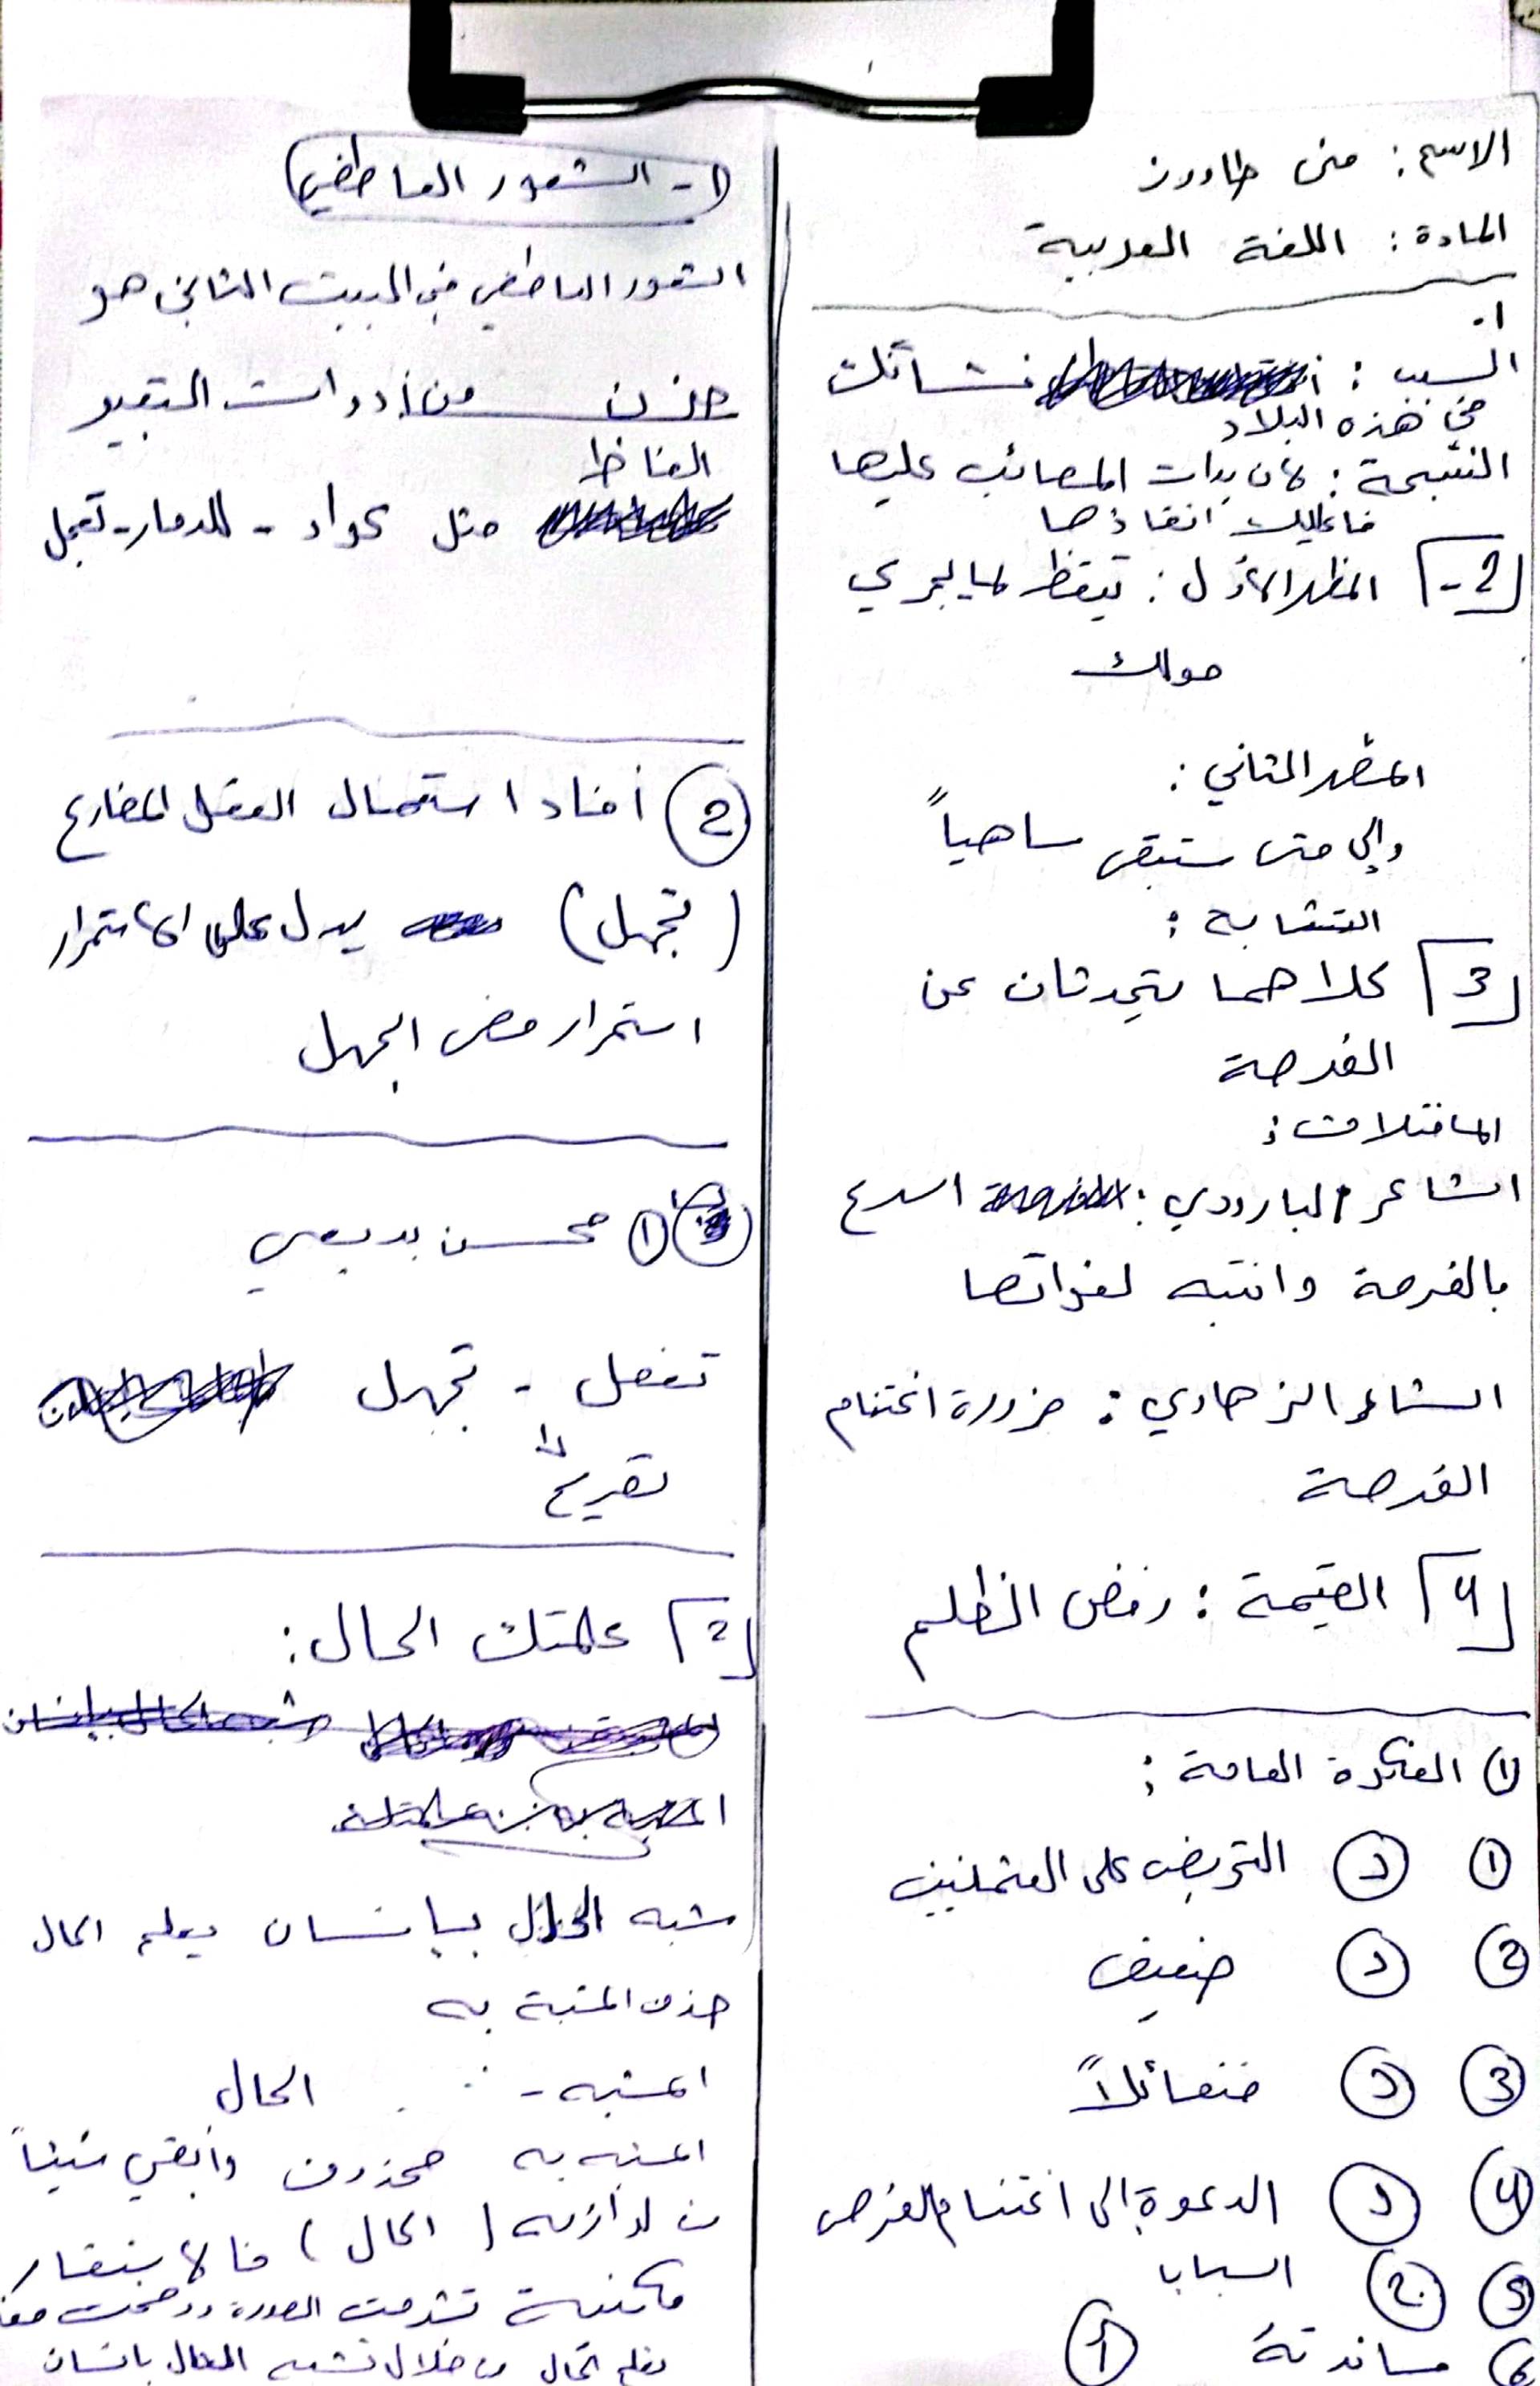 الاسم : منى طاورن
المادة : اللغة العربية
1.
السبب : نشأتك
في هذه البلاد
النتيجة : لأن بدات المصائب عليها
فاعليك انقاذها
2- المظهر الأول : تيقظ لما يجري
حولك
المظهر الثاني :
وإلى متى ستبقى ساهياً
التشابه :
3 كلاهما يتحدثان عن
الفرصة
الاختلاف :
الشاعر البارودي : اسرع
بالفرصة وانتبه لفواتها
الشاعر الزهاوي : ضرورة اغتنام
الفرصة
4 القيمة : رفض الظلم
1 الفكرة العامة :
1 د التحريض على العثمانيين
2 د ضعيف
3 د متفائلاً
4 د الدعوة إلى اغتنام الفرص
5 2. السباب
6 مساندته 1
1- الشعور العاطفي
الشعور العاطفي في البيت الثاني هو
حزن من أدوات التعبير
الفاظ
مثل عواد - للدمار - تعجل
2 أفاد استعمال الفعل المضارع
(تجهل) يدل على الاستمرار
استمرار مضى الجهل
1 محسن بديعي
تفعل - تجهل
تصريع
2 علمتك الحال :
شبه الحال بإنسان يعلم الحال
حذف المشبه به
المشبه - الحال
المشبه به محذوف وأبقي شيئاً
من لوازمه ( الحال ) فالاستعارة
مكنية
يعلم الحال من خلال تشبيه الحال بانسان